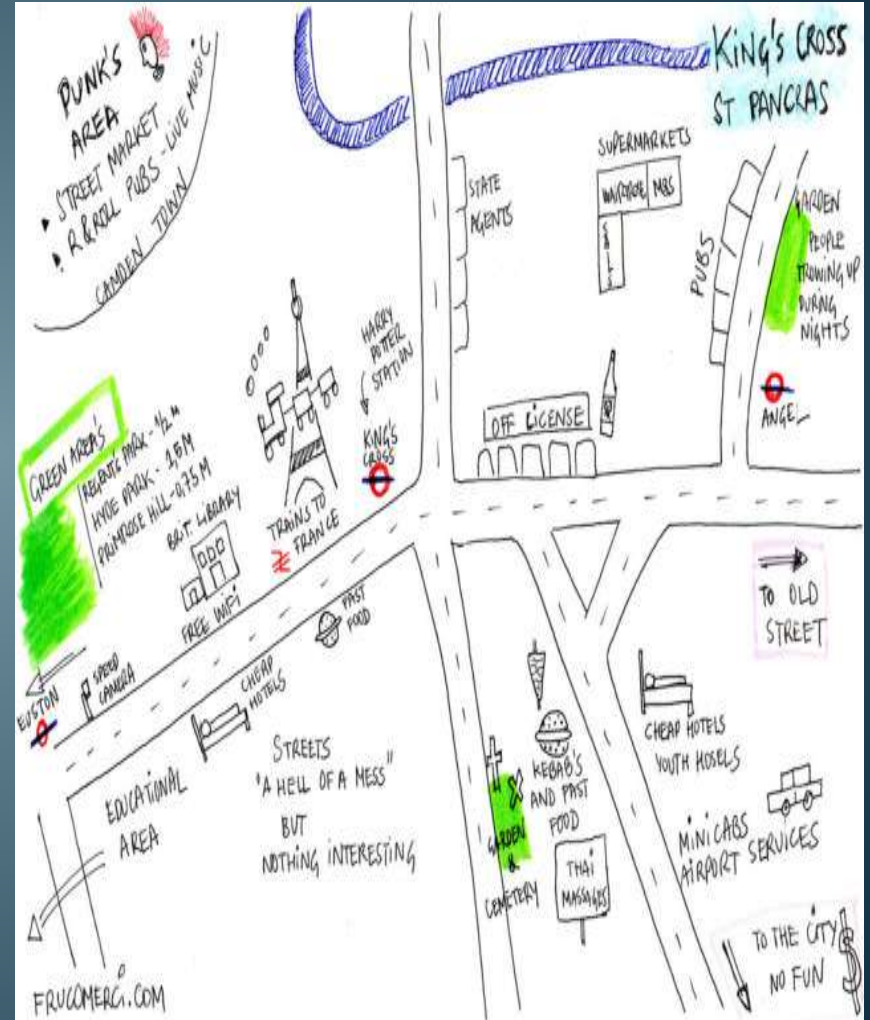 PUNK'S
AREA
STREET MARKET
R&ROLL PUBS - LIVE MUSIC
CAMDEN TOWN
KING'S CROSS
ST PANCRAS
STATE
AGENTS
SUPERMARKETS
WAITROSE M&S
PUBS
GARDEN
PEOPLE
TROWING UP
DURING
NIGHTS
ANGEL
HARRY
POTTER
STATION
KING'S
CROSS
OFF LICENSE
GREEN AREA'S
REGENTS PARK - 1/2 M
HYDE PARK - 1,5 M
PRIMROSE HILL - 0,75 M
BRIT. LIBRARY
FREE WIFI
TRAINS TO
FRANCE
FAST
FOOD
TO OLD
STREET
EUSTON
SPEED
CAMERA
CHEAP
HOTELS
EDUCATIONAL
AREA
STREETS
"A HELL OF A MESS"
BUT
NOTHING INTERESTING
KEBAB'S
AND FAST
FOOD
GARDEN
&
CEMETERY
THAI
MASSAGES
CHEAP HOTELS
YOUTH HOSELS
MINICABS
AIRPORT SERVICES
TO THE CITY
NO FUN
$
FRUGOMERCI.COM